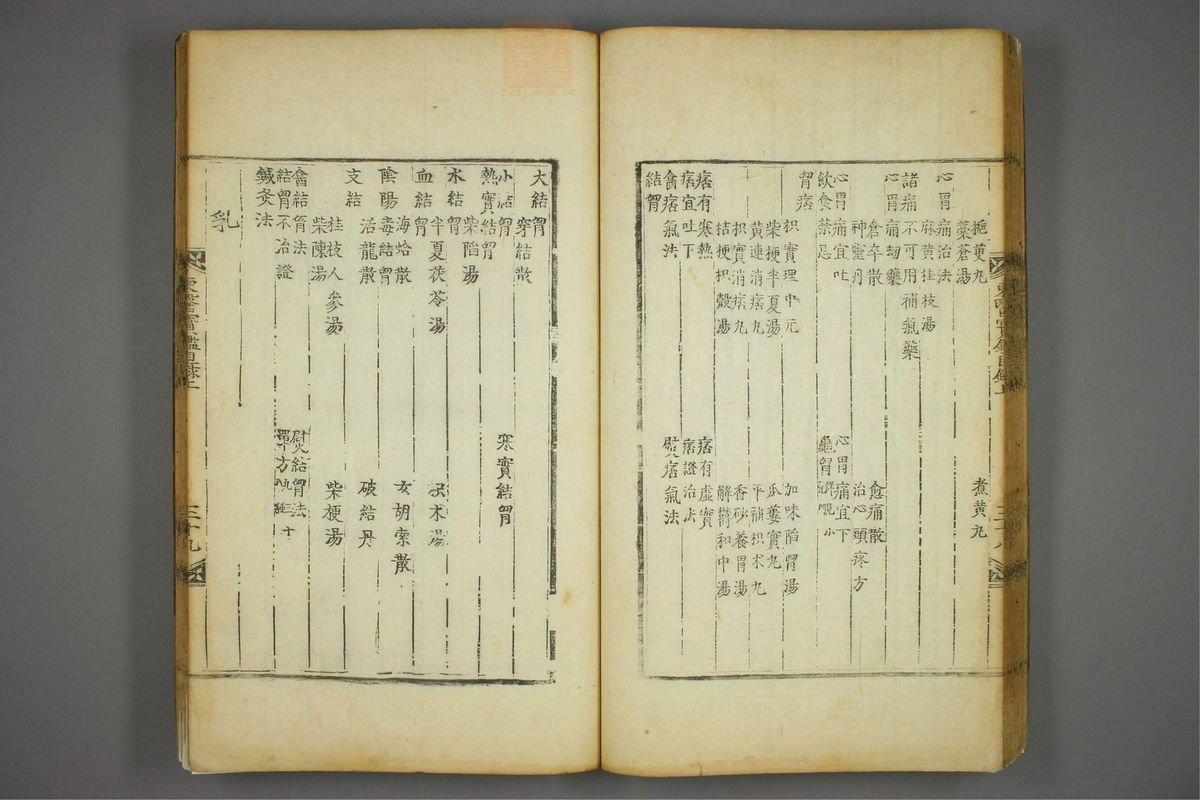 梔萸丸
煮黄丸
蒼湯
心胃痛治法
麻黄桂枝湯
諸痛不可用補氣藥
心胃痛刼藥
倉卒散
愈痛散
神靈丹
治心頭疼方
心胃痛宜吐
心胃痛宜下
飲食禁忌
龜胷
胷痞
枳實理中元
加味陷胷湯
柴梗半夏湯
瓜蔞實丸
黄連消痞丸
平補枳朮丸
枳實消痞丸
香砂養胃湯
桔梗枳殼湯
解鬱和中湯
痞有寒熱
痞有虚實
痞宜吐下
痞證治法
噙痞氣法
熨痞氣法
結胷
大結胷
穿結散
小結胷
寒實結胷
熱實結胷
柴陷湯
水結胷
半夏茯苓湯
枳朮湯
血結胷
海蛤散
女胡索散
陰陽毒結胷
活龍散
破結丹
支結
桂枝人參湯
柴梗湯
柴陳湯
噙結胷法
熨結胷法
結胷不治證
單方
鍼灸法
乳
東醫寶鑑目録上
三十八
東醫寶鑑目録上
三十九